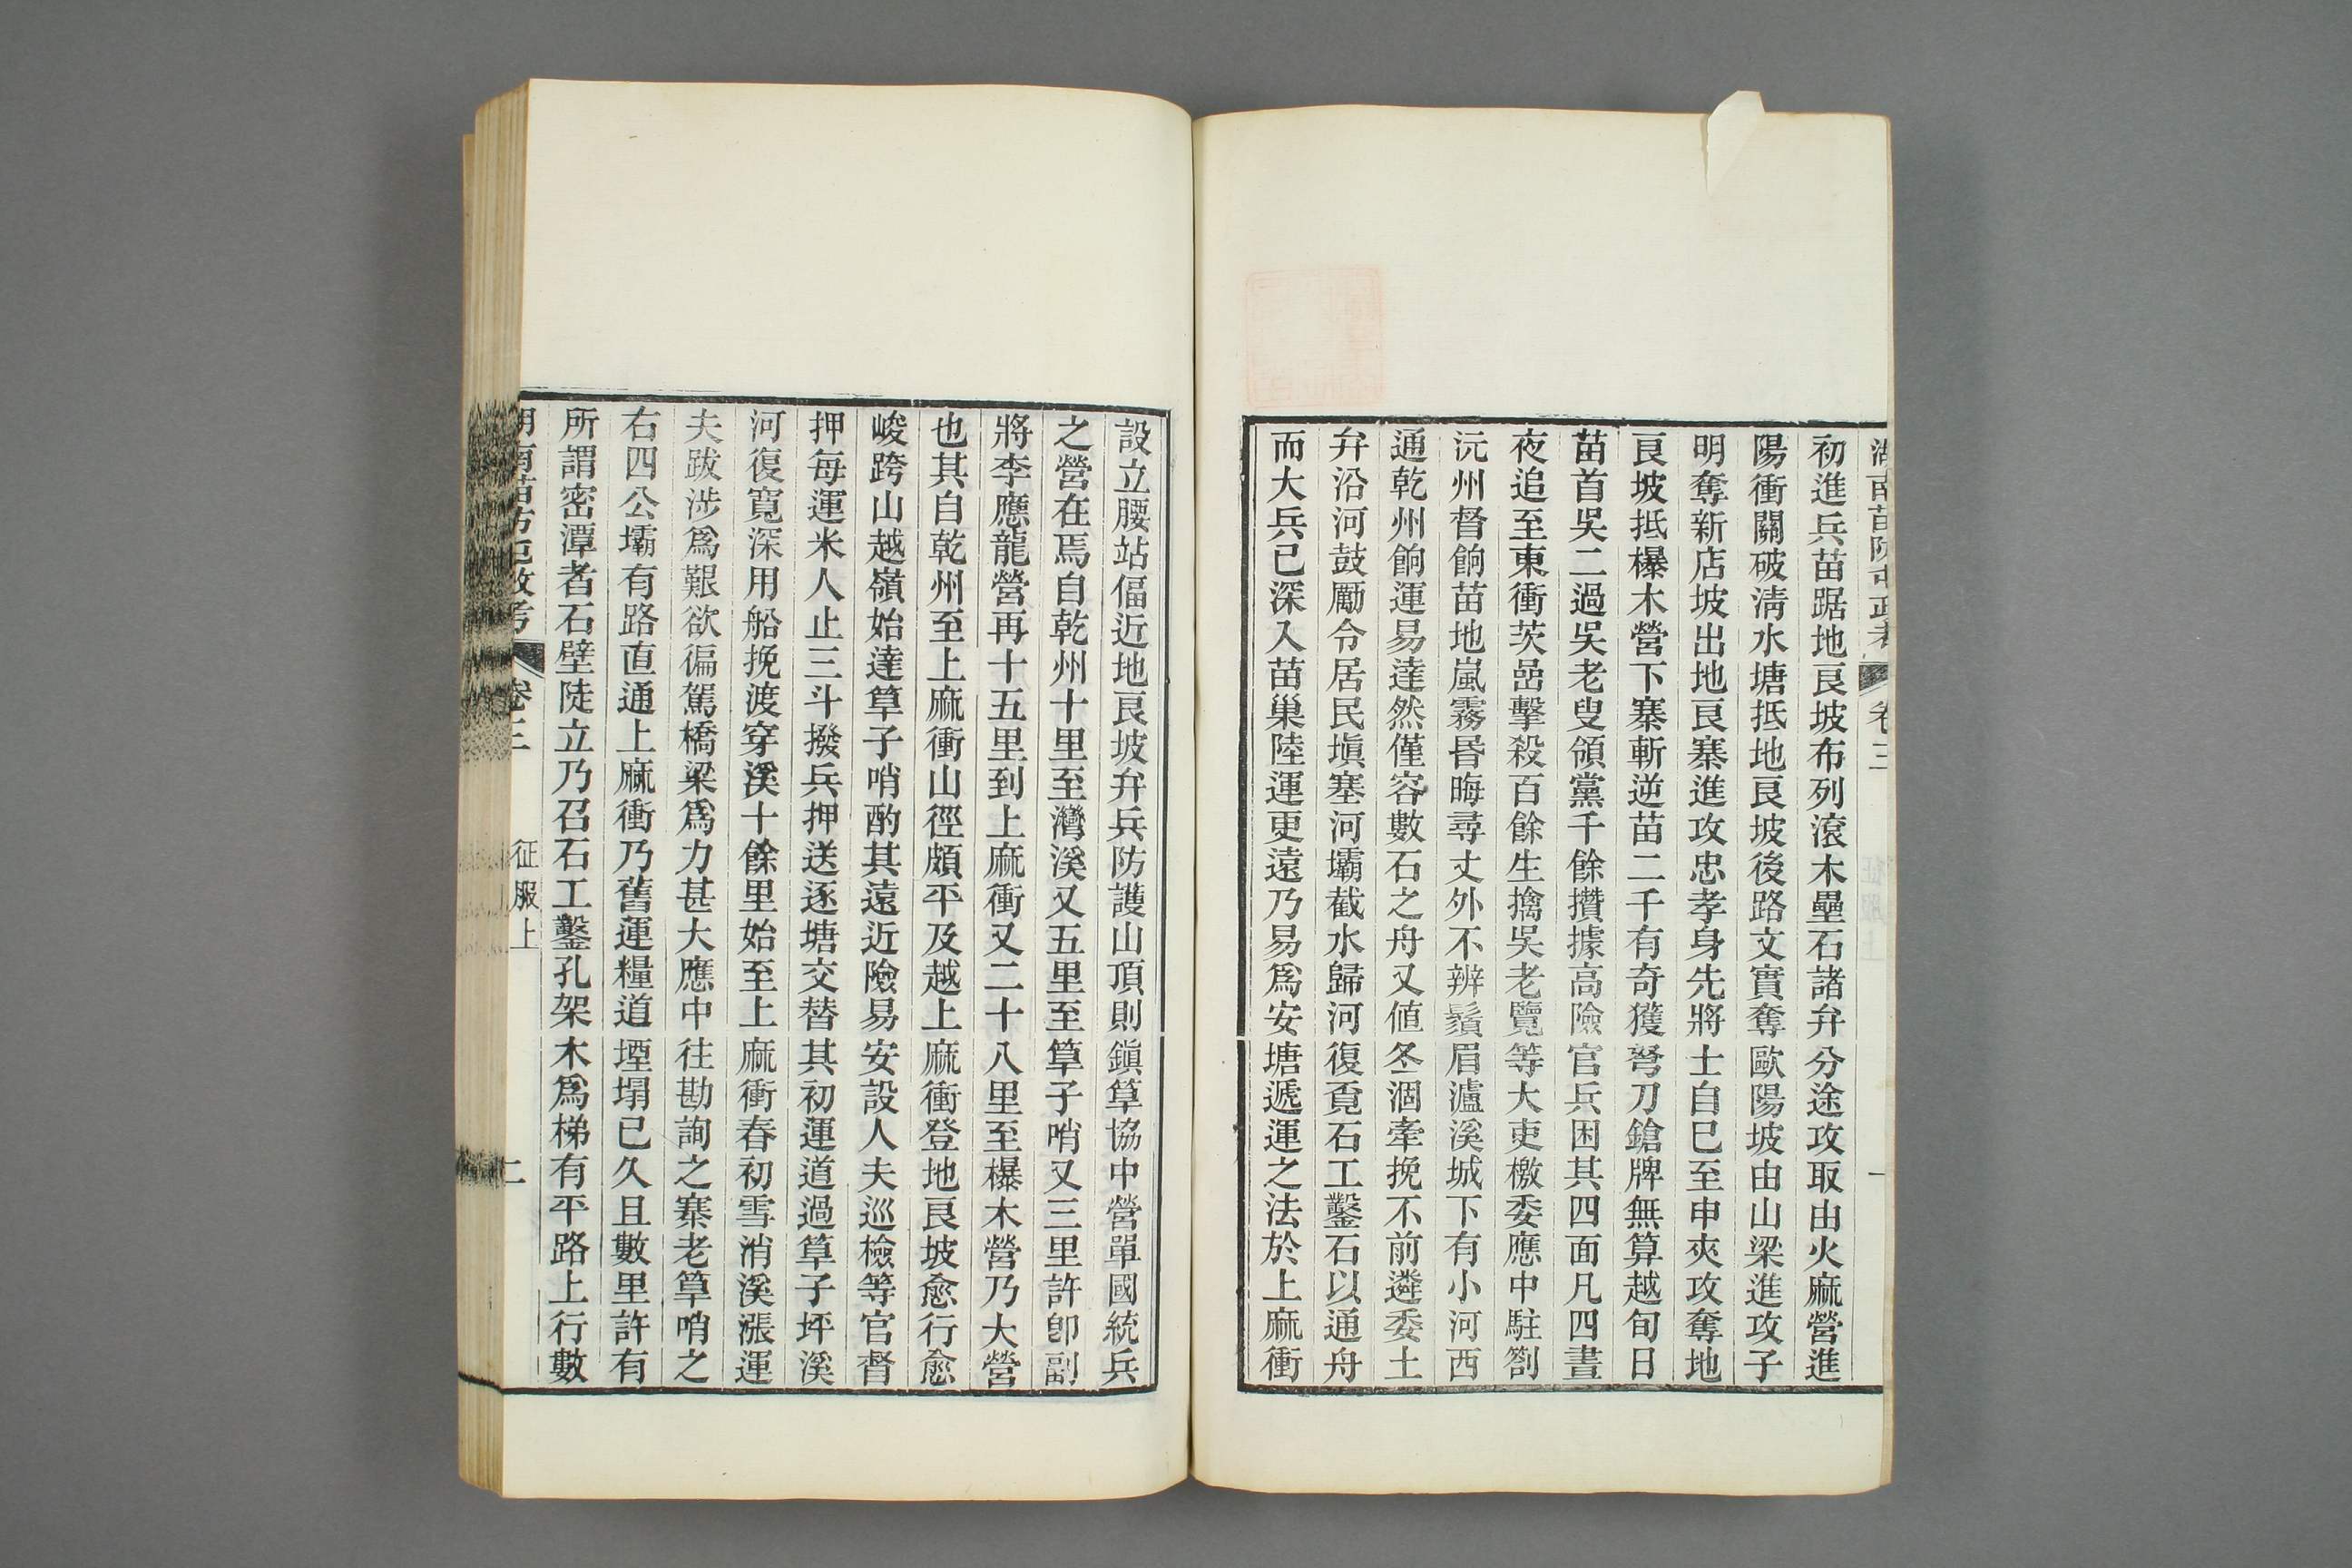 湖南苗防屯政考 卷三
初進兵苗踞地良坡布列滾木壘石諸弁分途攻取由火麻營進
陽衝關破清水塘抵地良坡後路文實奪歐陽坡由山梁進攻子
明奪新店坡出地良寨進攻忠孝身先將士自巳至申夾攻奪地
良坡抵㯷木營下寨斬逆苗二千有奇獲弩刀鎗牌無算越旬日
苗首吳二過吳老叟領黨千餘攢據高險官兵困其四面凡四晝
夜追至東衝茨嵒擊殺百餘生擒吳老覽等大吏檄委應中駐劄
沅州督餉苗地嵐霧昏晦尋丈外不辨鬚眉瀘溪城下有小河西
通乾州餉運易達然僅容數石之舟又值冬涸牽挽不前遴委土
弁沿河鼓勵令居民塡塞河壩截水歸河復覔石工鑿石以通舟
而大兵已深入苗巢陸運更遠乃易爲安塘遞運之法於上麻衝
設立腰站偪近地良坡弁兵防護山頂則鎭筸協中營單國統兵
之營在焉自乾州十里至灣溪又五里至筸子哨又三里許卽副
將李應龍營再十五里到上麻衝又二十八里至㯷木營乃大營
也其自乾州至上麻衝山徑頗平及越上麻衝登地良坡愈行愈
峻跨山越嶺始達筸子哨酌其遠近險易安設人夫巡檢等官督
押每運米人止三斗撥兵押送逐塘交替其初運道過筸子坪溪
河復寬深用船挽渡穿溪十餘里始至上麻衝春初雪消溪漲運
夫跋涉爲艱欲徧駕橋梁爲力甚大應中往勘詢之寨老筸哨之
右四公壩有路直通上麻衝乃舊運糧道堙塌已久且數里許有
所謂密潭者石壁陡立乃召石工鑿孔架木爲梯有平路上行數
湖南苗防屯政考 卷三 征服上 二